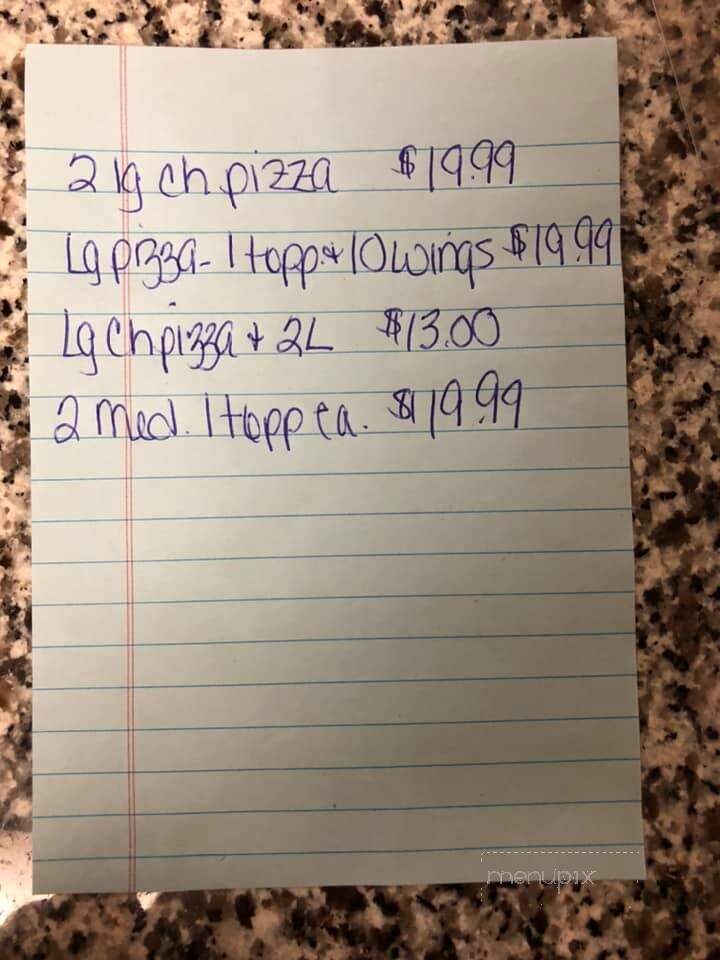 2 lg ch pizza $19.99
Lg pizza- 1 topp. + 10 wings $19.99
Lg Ch pizza + 2L $13.00
2 med. 1 topp ea. $19.99
menupix